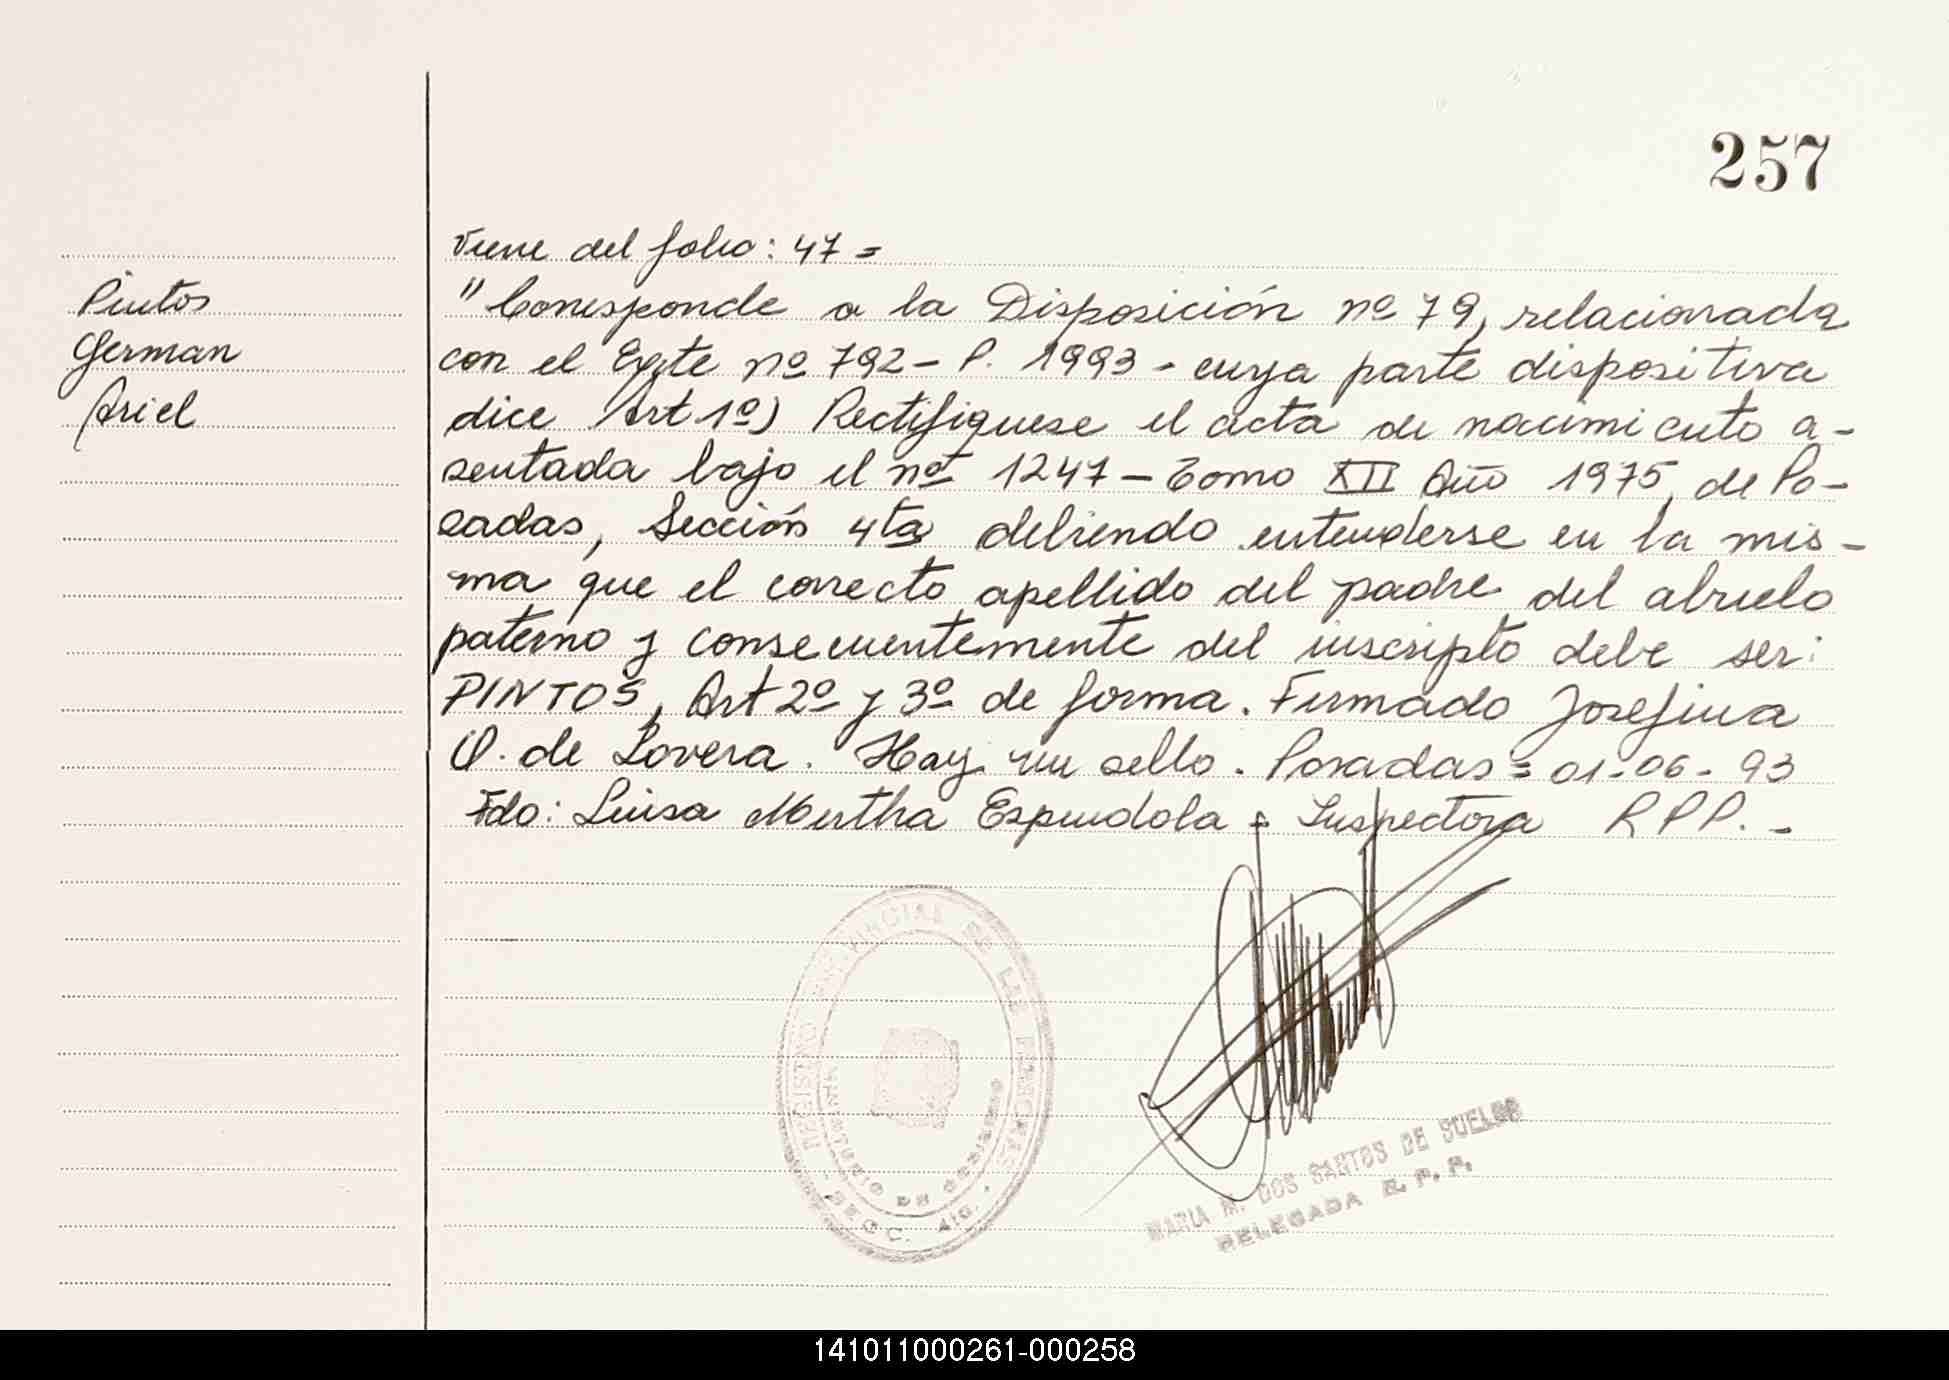 257
Viene del folio: 47 =
Pintos
German
Ariel
"Corresponde a la Disposición nº 79, relacionada
con el Expte nº 792 - P. 1993 - cuya parte dispositiva
dice Art 1º) Rectifiquese el acta de nacimiento a-
sentada bajo el nº 1247 - Tomo XII Año 1975, de Po-
sadas, Sección 4ta debiendo entenderse en la mis-
ma que el correcto apellido del padre, del abuelo
paterno y consecuentemente del inscripto debe ser:
PINTOS, Art 2º y 3º de forma. Firmado Josefina
O. de Lovera. Hay un sello. Posadas = 01-06-93
Fdo: Luisa Mirtha Espindola = Inspectora R P P. -
REGISTRO PROVINCIAL DE LAS PERSONAS
DE
MARIA M. DOS SANTOS DE SUELOS
DELEGADA R. P. P.
141011000261-000258